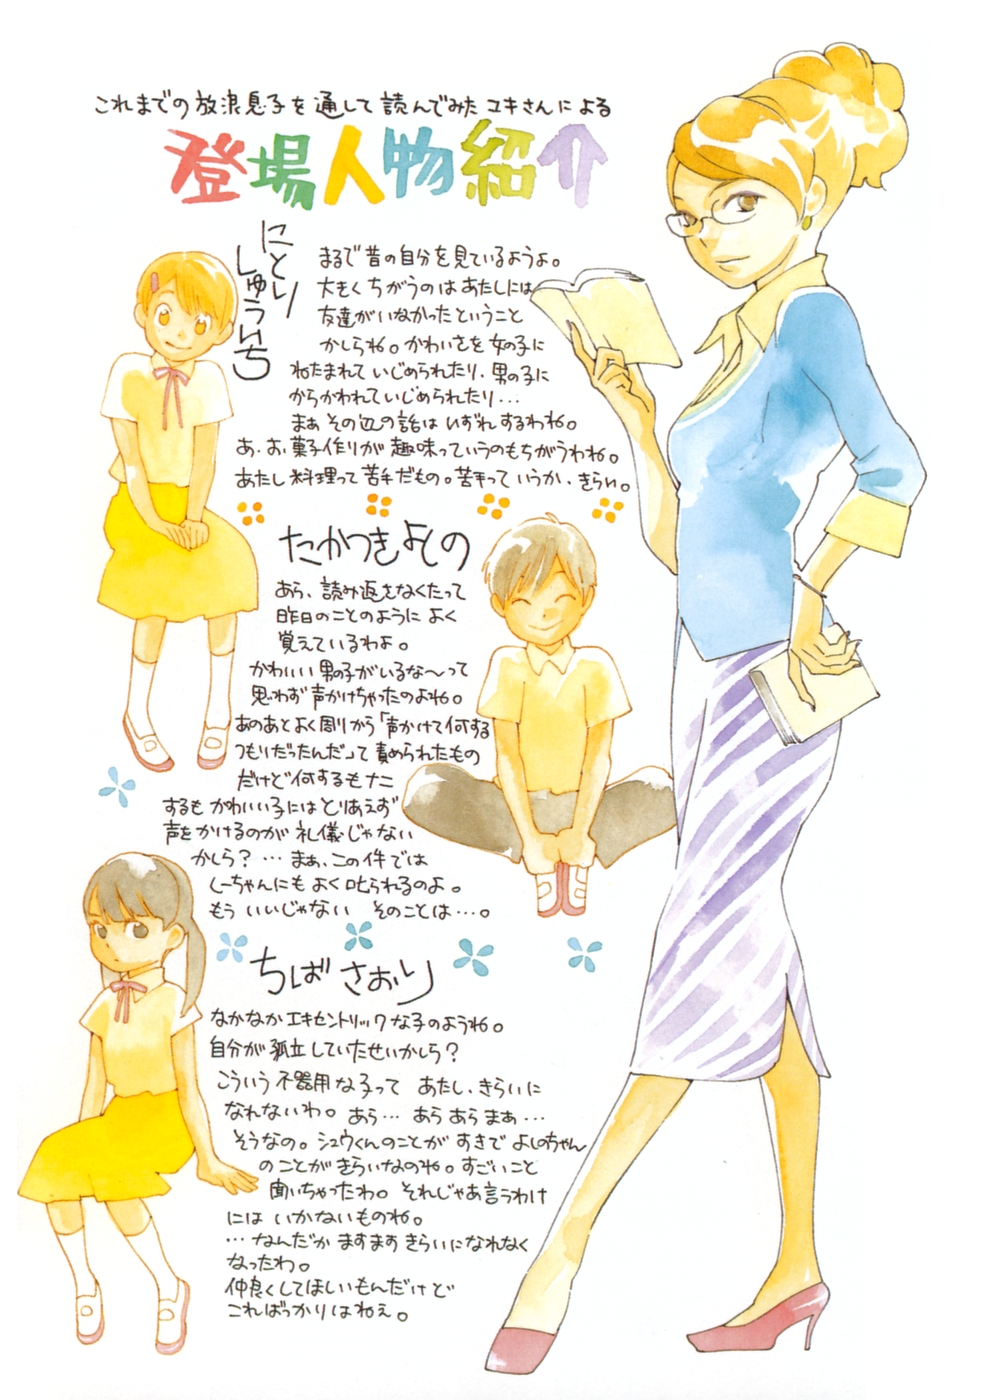 これまでの放浪息子を通して読んでみたユキさんによる
登場人物紹介
にとり
しゅういち
まるで昔の自分を見ているようよ。
大きくちがうのはあたしには
友達がいなかったということ
かしらね。かわいさを女の子に
ねたまれていじめられたり、男の子に
からかわれていじめられたり…
まぁその辺の話はいずれするわね。
あ、お菓子作りが趣味っていうのもちがうわね。
あたし料理って苦手だもの。苦手っていうか、きらい。
たかつきよしの
あら、読み返さなくたって
昨日のことのようによく
覚えているわよ。
かわいい男の子がいるな〜って
思わず声かけちゃったのよね。
あのあとよく周りから「声かけて何する
つもりだったんだ」って責められたもの
だけど何するもナニ
するもかわいい子にはとりあえず
声をかけるのが礼儀じゃない
かしら？…まぁ、この件では
しーちゃんにもよく叱られるのよ。
もういいじゃない そのことは…。
ちばさおり
なかなかエキセントリックな子のようね。
自分が孤立していたせいかしら？
こういう不器用な子って あたし、きらいに
なれないわ。あら…あらあらまぁ…
そうなの。シュウくんのことがすきでよしのちゃん
のことがきらいなのね。すごいこと
聞いちゃったわ。それじゃあ言うわけ
にはいかないものね。
…なんだかますますきらいになれなく
なったわ。
仲良くしてほしいもんだけど
こればっかりはねぇ。